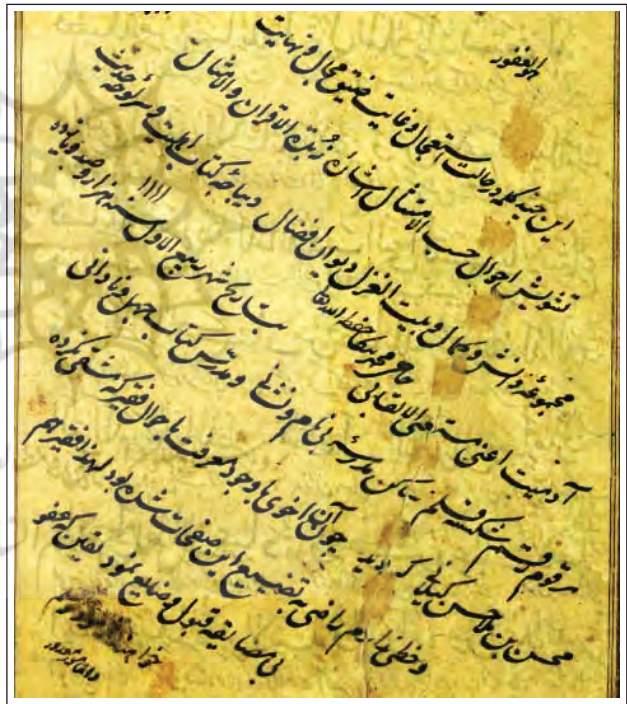 هو الغفور
این چند کلمه در حالت استعجال و غایت ضیق مجال و نهایت
تشویش احوال حسب الامتثال اشاره زبدة الاقران والامثال
مجموعهٔ دانش و کمال و بیت الغزل دیوان افضال دیباچهٔ کتاب اهلیت و سرلوحهٔ حدیث
آدمیت اعنی مستغنی الالقابی حفظه الله تعالی بتاریخ شهر ربیع الاول سنه هزار و صد و یازده ۱۱۱۱
مرقوم رقم شکسته قلم ساکن مدرسهٔ بی نام و نشانی و مدرس کتاب جهل و نادانی
محسن بن ملا حسن گیلانی گردید چون آن ملاذ اخوی با وجود معرفت باحوال فقیر که مشقی نکرده
و خطی ندارم راضی به تضییع این صفحات شده بود لهذا فقیر هم
بی مضایقه قبول و ضایع نمود یقین که عفو
خواهند